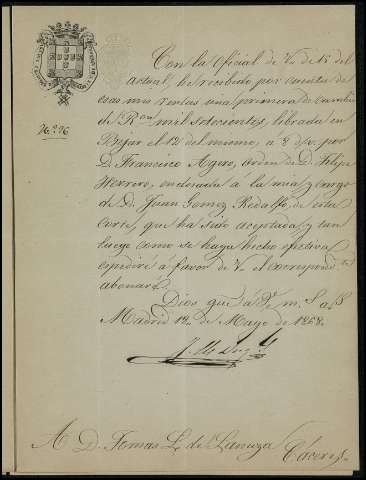 Con la oficial de V. de 15 del
actual, he recibido por cuenta de
esas mis rentas una primera de cambio
de Ron mil setecientos, librada en
Bejar el 12 del mismo, a 8 d/v. por
D. Francisco Agero, orden de D. Felipe
Herrero, endosada á la mia y cargo
de D. Juan Gomez Redalfo, de esta
Corte, que ha sido aceptada y tan
luego como se haya hecho efectiva
espediré á favor de V. el correspond.te
abonaré.
Dios gue. á V. m. s. a.s
Madrid 19 de Mayo de 1868.
A D. Tomas L. de Lanuza
Cáceres.